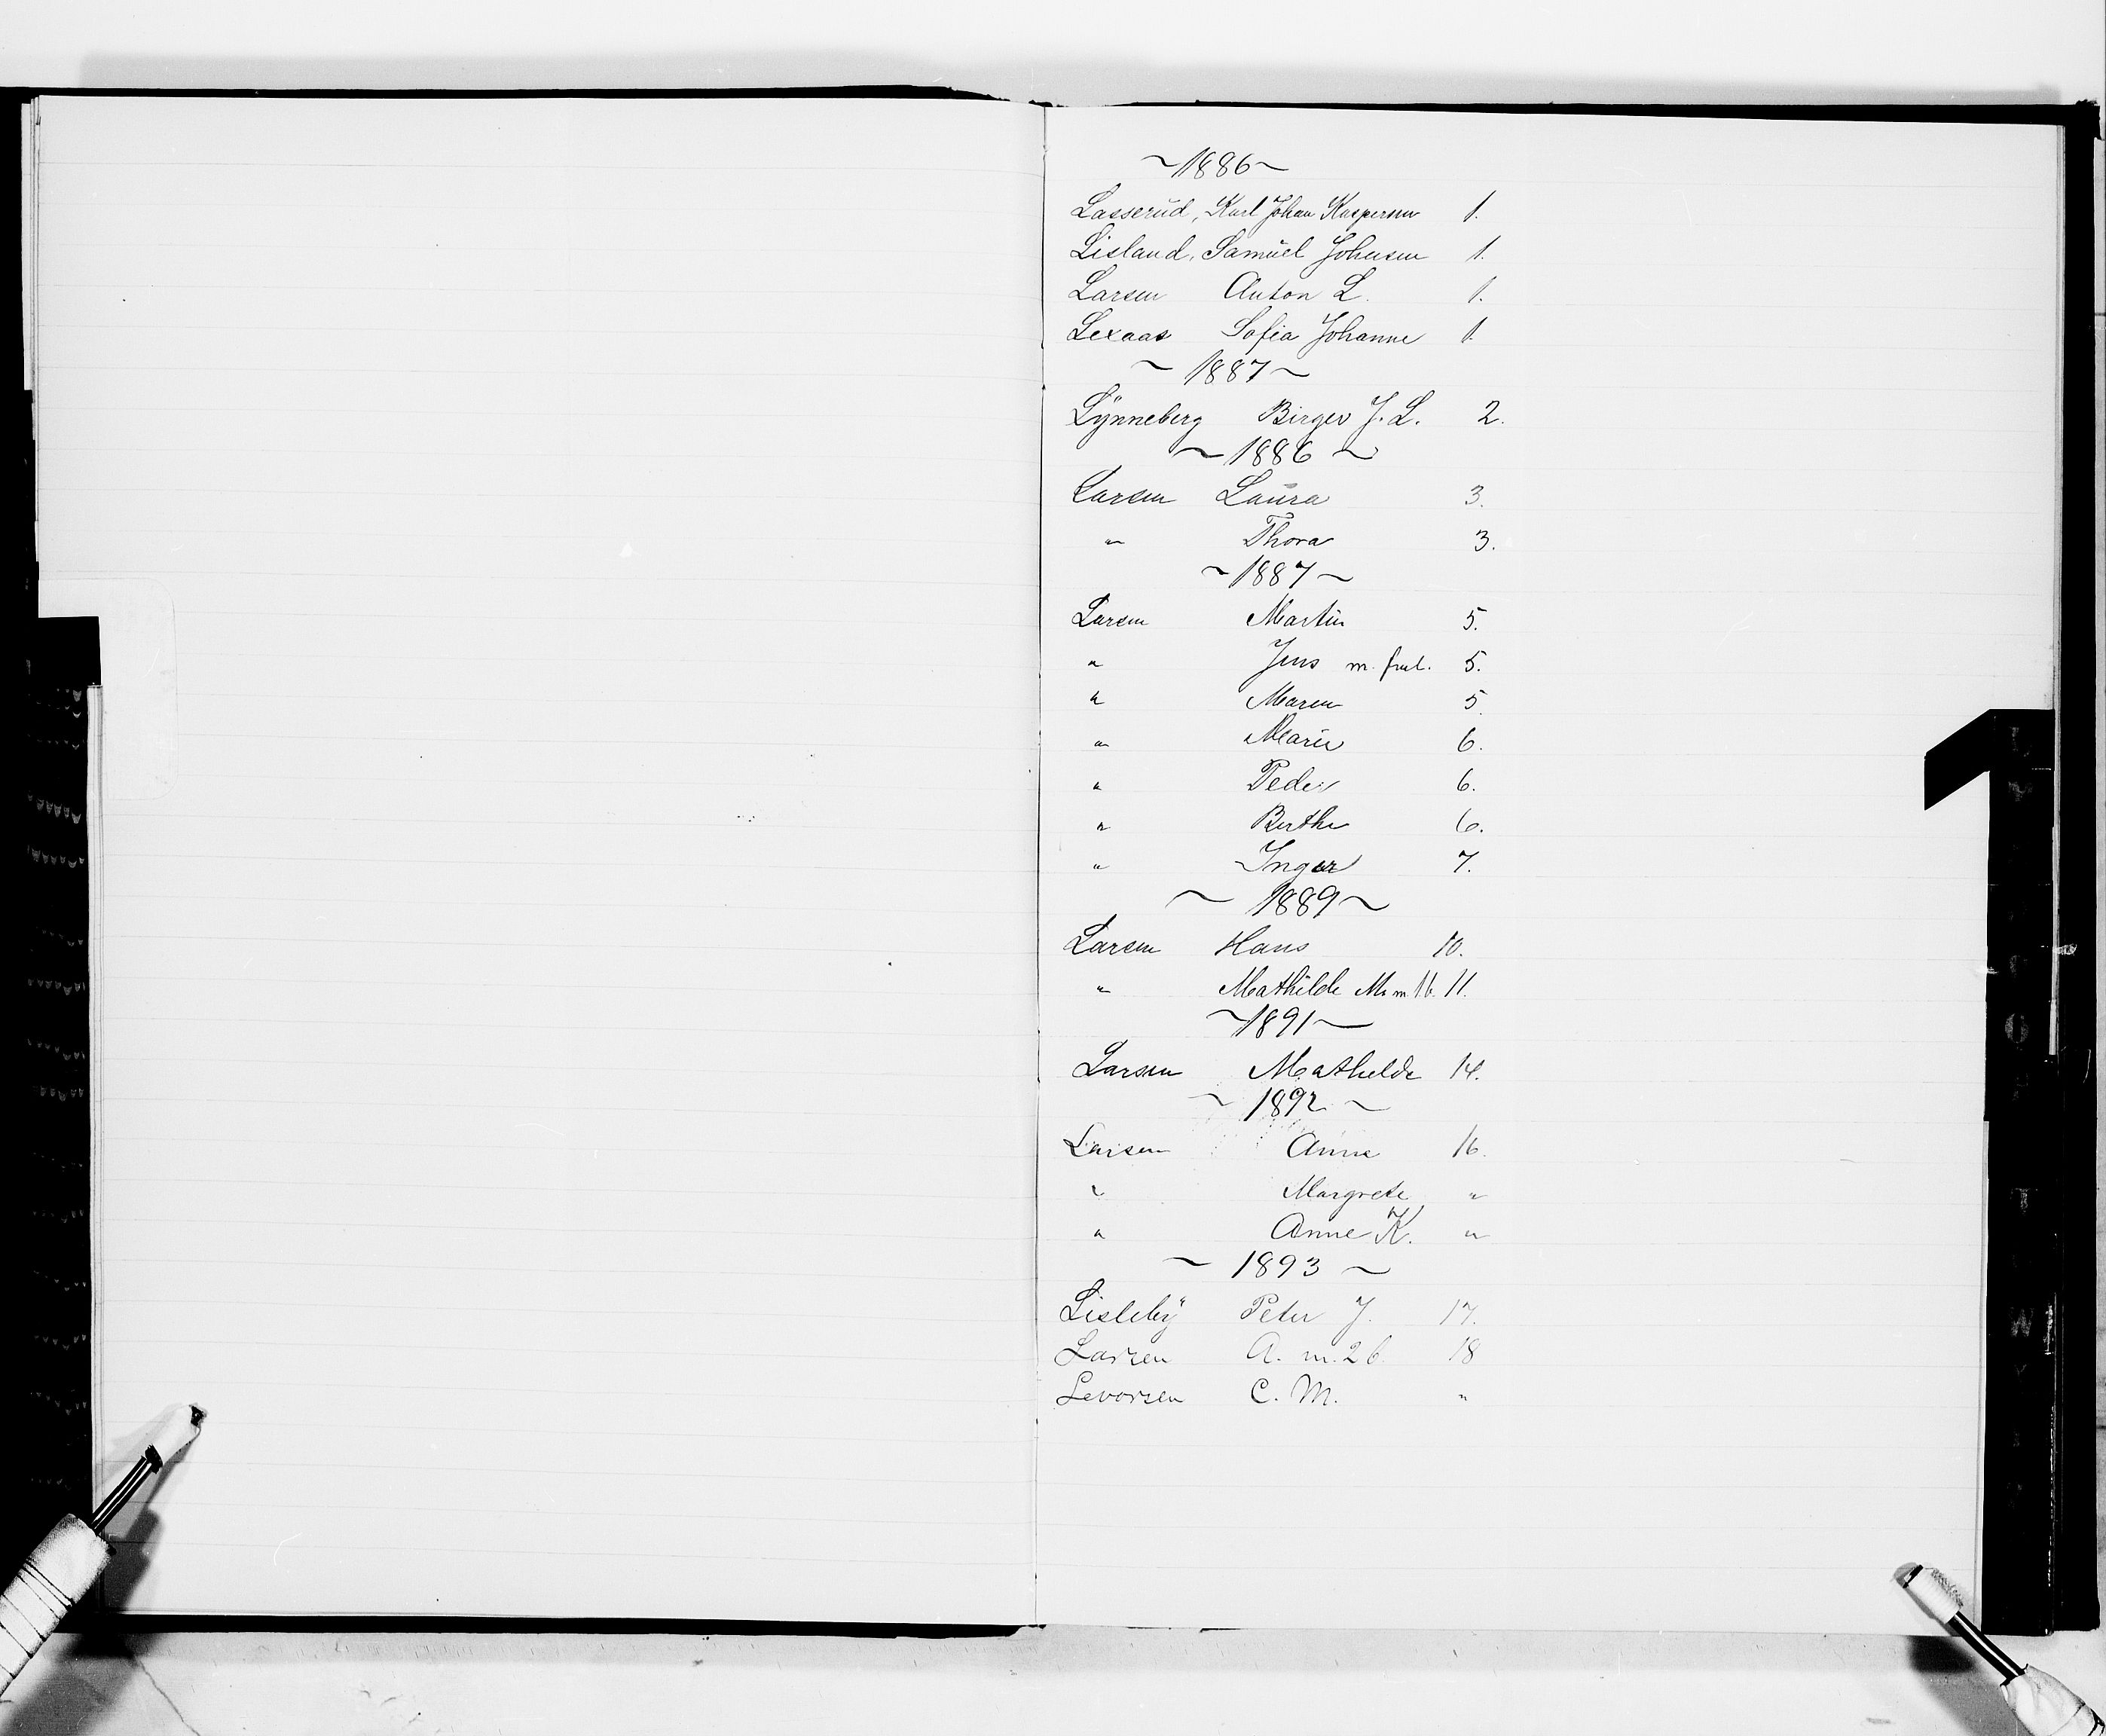 ~1886~
Lasserud, Karl Johan Kaspersen 1.
Lisland, Samuel Johnsen 1.
Larsen Anton L. 1.
Lexaas Sofia Johanne 1.
~ 1887 ~
Lynneberg Birger J. L. 2.
~ 1886 ~
Larsen Laura 3.
" Thora 3.
~ 1887 ~
Larsen Martin 5.
" Jens m. 5.
" Maren 5.
" Marie 6.
" Peder 6.
" Berthe 6.
" Inger 7.
~ 1889 ~
Larsen Hans 10.
" Mathilde M. m. 16. 11.
~ 1891 ~
Larsen Mathilde 14.
~ 1892 ~
Larsen Anne 16.
" Margrete "
" Anne K. "
~ 1893 ~
Lisleby Peter J. 17.
Larsen A. m. 26. 18
Levorsen C. M. "